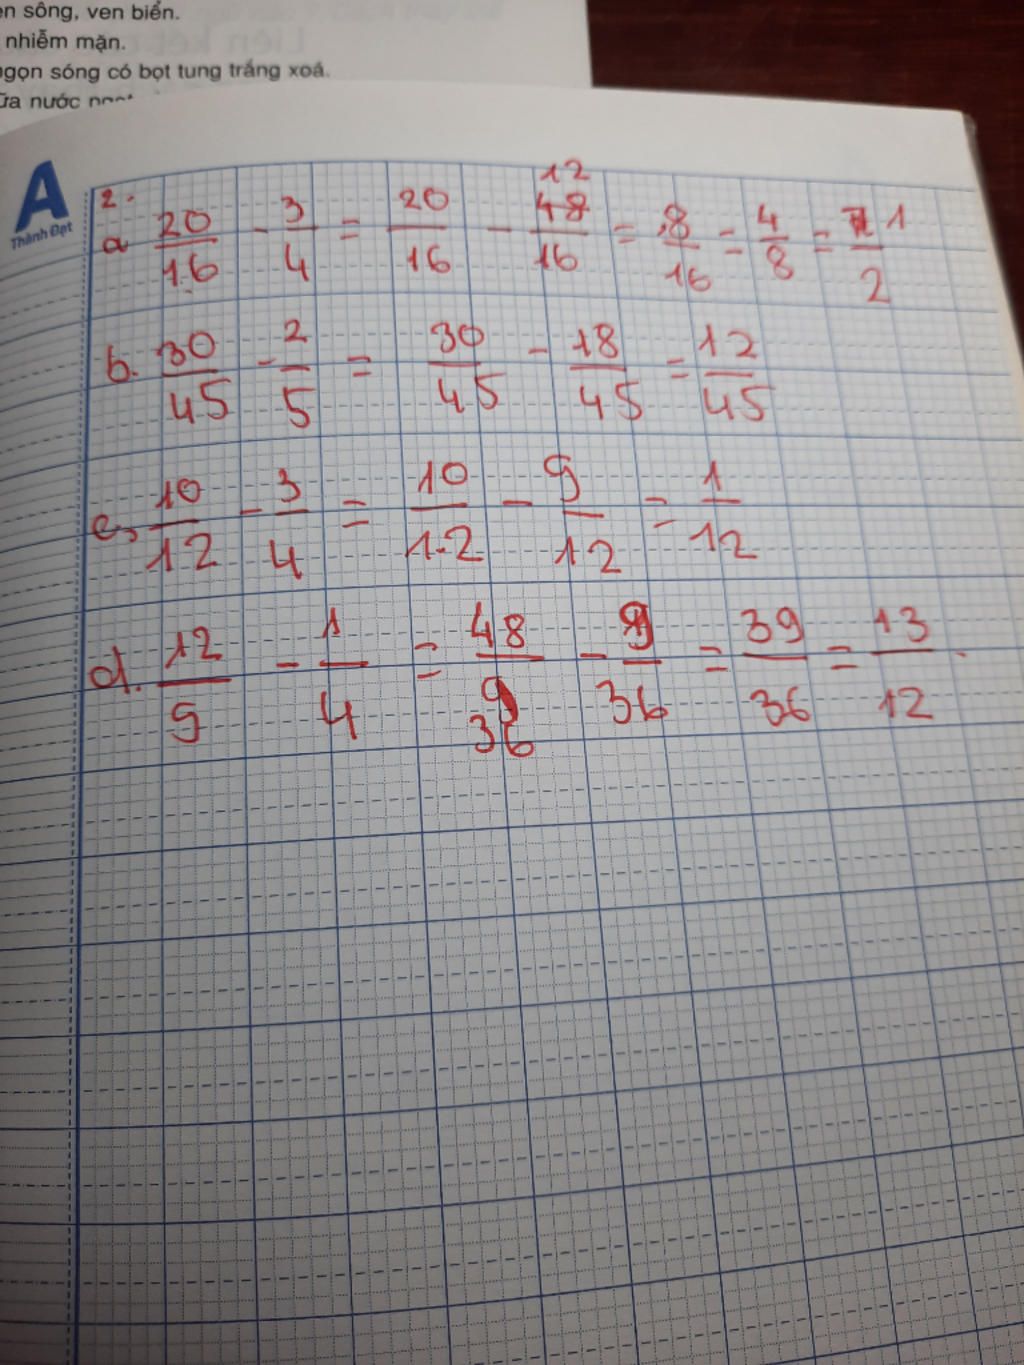 en sông, ven biển.
nhiễm mặn.
ngọn sóng có bọt tung trắng xoá.
ữa nước ngọt
A
Thành Đạt
2.
a 20/16 - 3/4 = 20/16 - 12/16 = 8/16 = 4/8 = 1/2
b. 30/45 - 2/5 = 30/45 - 18/45 = 12/45
c, 10/12 - 3/4 = 10/12 - 9/12 = 1/12
d. 12/9 - 1/4 = 48/36 - 9/36 = 39/36 = 13/12